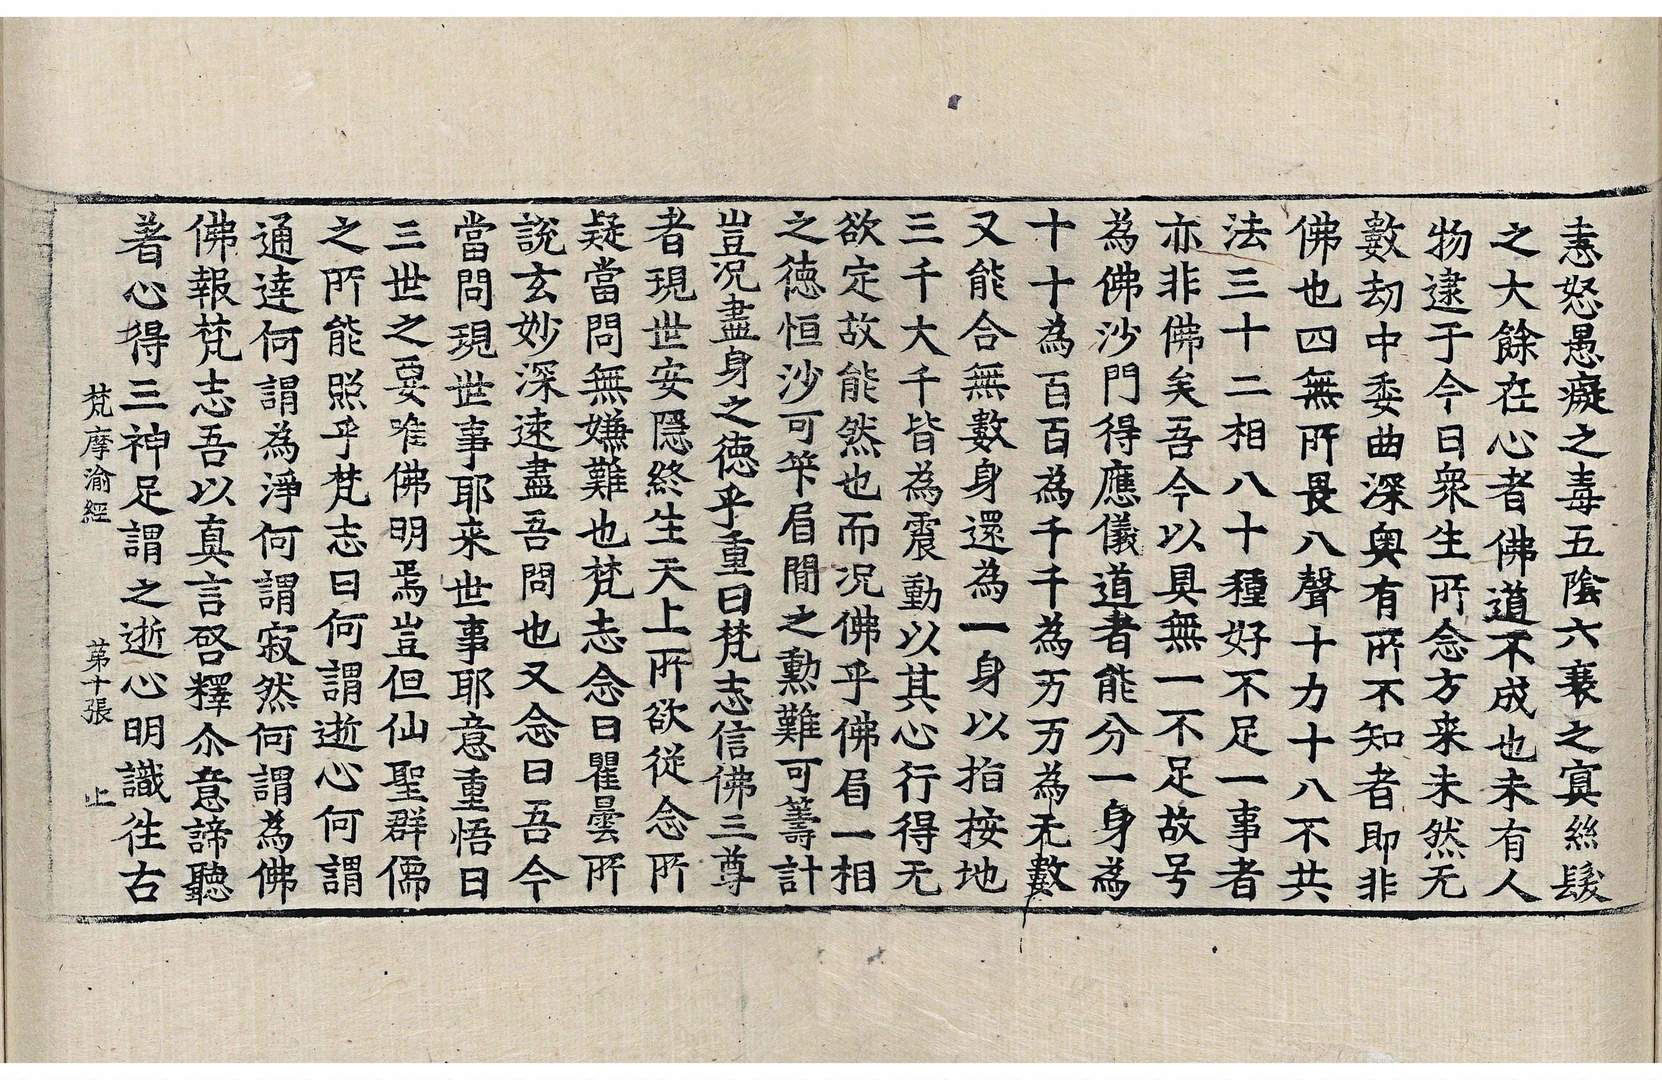 恚怒愚癡之毒五陰六衰之冥絲髮
之大餘在心者佛道不成也未有人
物逮于今日衆生所念方来未然无
數劫中委曲深奥有所不知者即非
佛也四無所畏八聲十力十八不共
法三十二相八十種好不足一事者
亦非佛矣吾今以具無一不足故号
為佛沙門得應儀道者能分一身為
十十為百百為千千為万万為无數
又能合無數身還為一身以指按地
三千大千皆為震動以其心行得无
欲定故能然也而况佛乎佛眉一相
之德恒沙可笇眉閒之勲難可籌計
豈况盡身之德乎重曰梵志信佛三尊
者現世安隱終生天上所欲從念所
疑當問無嫌難也梵志念曰瞿曇所
説玄妙深遠盡吾問也又念曰吾今
當問現世事耶来世事耶意重悟曰
三世之要唯佛明焉豈但仙聖群儒
之所能照乎梵志曰何謂逝心何謂
通達何謂為淨何謂寂然何謂為佛
佛報梵志吾以真言啓釋尒意諦聽
著心得三神足謂之逝心明識往古
梵摩渝經 第十張 止